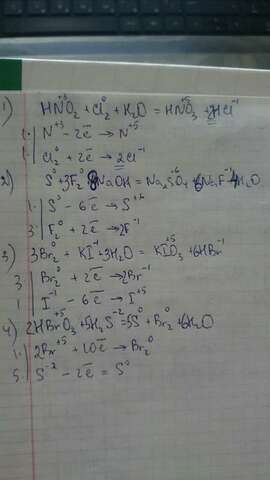 1) HN⁺³O₂ + Cl₂⁰ + H₂O = HN⁺⁵O₃ + 2HCl⁻¹
1 | N⁺³ - 2e̅ → N⁺⁵
1 | Cl₂⁰ + 2e̅ → 2Cl⁻¹
2) S⁰ + 3F₂⁰ 8NaOH = Na₂S⁺⁶O₄ + 6NaF⁻¹ 4H₂O
1 | S⁰ - 6e̅ → S⁺⁶
3 | F₂⁰ + 2e̅ → 2F⁻¹
3) 3Br₂⁰ + KI⁻¹ + 3H₂O = KI⁺⁵O₃ + 6HBr⁻¹
3 | Br₂⁰ + 2e̅ → 2Br⁻¹
1 | I⁻¹ - 6e̅ → I⁺⁵
4) 2HBr⁺⁵O₃ + 5H₂S⁻² = 5S⁰ + Br₂⁰ + 6H₂O
1 | 2Br⁺⁵ + 10e̅ → Br₂⁰
5 | S⁻² - 2e̅ = S⁰